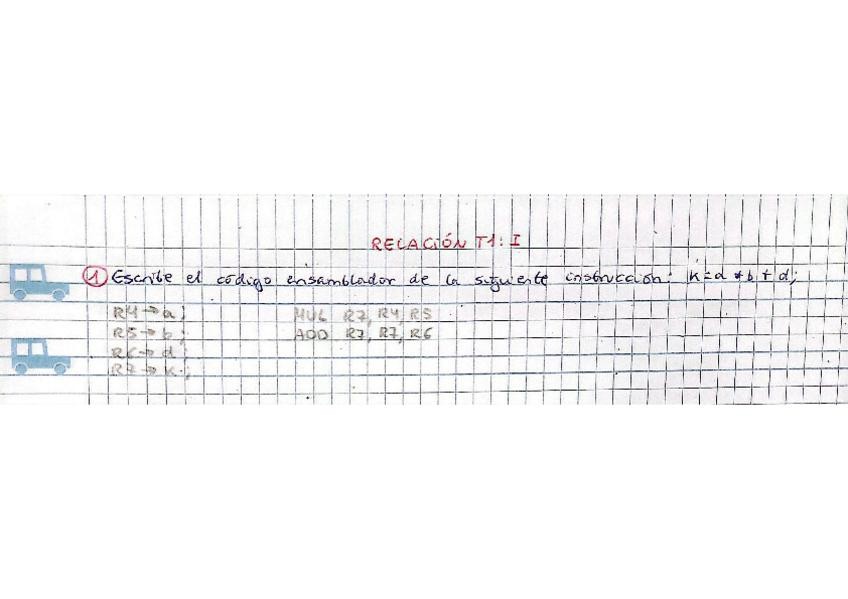 RELACIÓN T1: I
1 Escribe el código ensamblador de la siguiente instrucción: K=a*b+d;
R4→a; MUL R7, R4, R5
R5→b; ADD R7, R7, R6
R6→d;
R7→K;